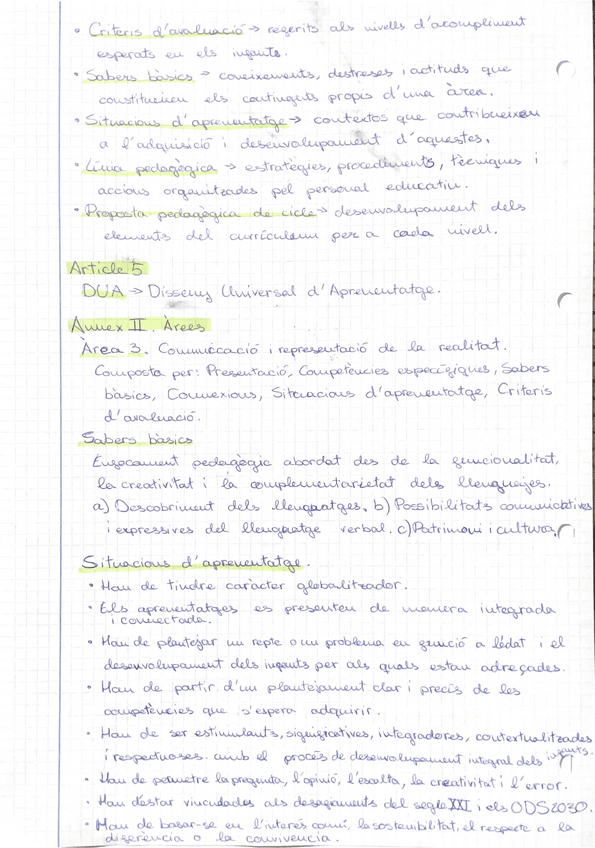 • Criteris d'avaluació → referits als nivells d'acompliment
esperats en els infants.
• Sabers bàsics → coneixements, destreses i actituds que
constitueixen els continguts propis d'una àrea.
• Situacions d'aprenentatge → contextos que contribueixen
a l'adquisició i desenvolupament d'aquestes.
• Línia pedagògica → estratègies, procediments, tècniques i
accions organitzades pel personal educatiu.
• Proposta pedagògica de cicle → desenvolupament dels
elements del currículum per a cada nivell.
Article 5
DUA → Disseny Universal d'Aprenentatge.
Annex II. Àrees
Àrea 3. Comunicació i representació de la realitat.
Composta per: Presentació, Competències específiques, Sabers
bàsics, Connexions, Situacions d'aprenentatge, Criteris
d'avaluació.
Sabers bàsics
Enfocament pedagògic abordat des de la funcionalitat,
la creativitat i la complementarietat dels llenguatges.
a) Descobriment dels llenguatges. b) Possibilitats comunicatives
i expressives del llenguatge verbal. c) Patrimoni i cultura.
Situacions d'aprenentatge.
• Han de tindre caràcter globalitzador.
• Els aprenentatges es presenten de manera integrada
i connectada.
• Han de plantejar un repte o un problema en funció a l'edat i el
desenvolupament dels infants per als quals estan adreçades.
• Han de partir d'un plantejament clar i precís de les
competències que s'espera adquirir.
• Han de ser estimulants, significatives, integradores, contextualitzades
i respectuoses. amb el procés de desenvolupament integral dels infants.
• Han de permetre la pregunta, l'opinió, l'escolta, la creativitat i l'error.
• Han d'estar vinculades als desafiaments del segle XXI i els ODS 2030.
• Han de basar-se en l'interés comú, la sostenibilitat, el respecte a la
diferència o la convivència.